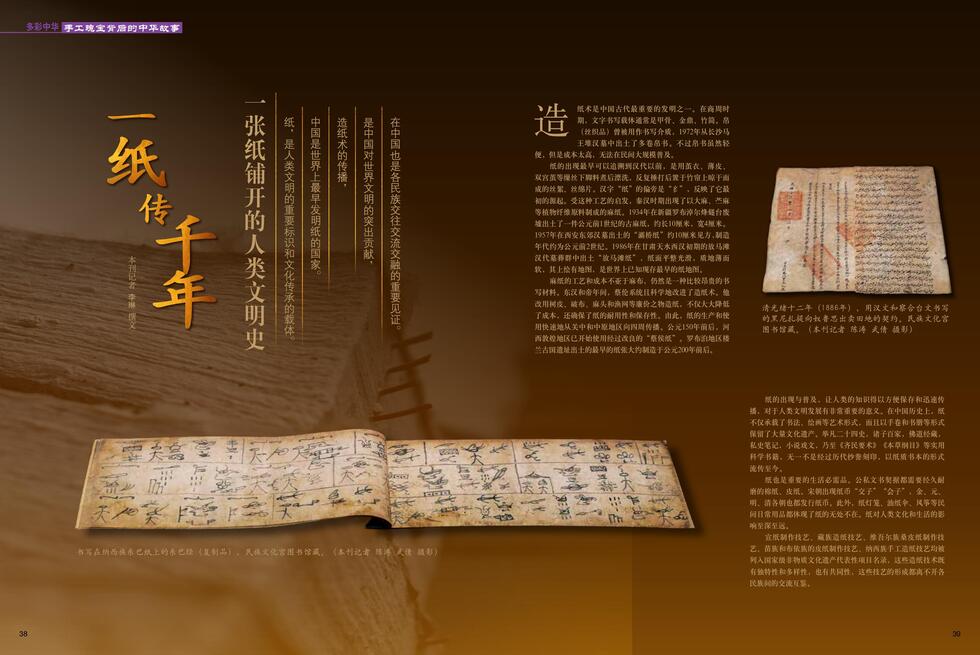 多彩中华 手工瑰宝背后的中华故事
一纸传千年
本刊记者 李琳 撰文
一张纸铺开的人类文明史
纸，是人类文明的重要标识和文化传承的载体。
中国是世界上最早发明纸的国家。
造纸术的传播，
是中国对世界文明的突出贡献，
在中国也是各民族交往交流交融的重要见证。
造纸术是中国古代最重要的发明之一。在商周时
期，文字书写载体通常是甲骨、金鼎、竹简。帛
（丝织品）曾被用作书写介质，1972年从长沙马
王堆汉墓中出土了多卷帛书。不过帛书虽然轻
便，但是成本太高，无法在民间大规模普及。
纸的出现最早可以追溯到汉代以前，是用茧衣、薄皮、
双宫茧等缫丝下脚料煮后漂洗、反复捶打后置于竹帘上晾干而
成的丝絮、丝绵片。汉字“纸”的偏旁是“纟”，反映了它最
初的源起。受这种工艺的启发，秦汉时期出现了以大麻、苎麻
等植物纤维原料制成的麻纸。1934年在新疆罗布淖尔烽燧台废
墟出土了一件公元前1世纪的古麻纸，约长10厘米，宽4厘米。
1957年在西安东郊汉墓出土的“灞桥纸”约10厘米见方，制造
年代约为公元前2世纪。1986年在甘肃天水西汉初期的放马滩
汉代墓葬群中出土“放马滩纸”，纸面平整光滑，质地薄而
软，其上绘有地图，是世界上已知现存最早的纸地图。
麻纸的工艺和成本不亚于麻布，仍然是一种比较昂贵的书
写材料。东汉和帝年间，蔡伦系统且科学地改进了造纸术。他
改用树皮、破布、麻头和渔网等廉价之物造纸，不仅大大降低
了成本，还确保了纸的耐用性和保存性。由此，纸的生产和使
用快速地从关中和中原地区向四周传播。公元150年前后，河
西敦煌地区已开始使用经过改良的“蔡侯纸”。罗布泊地区楼
兰古国遗址出土的最早的纸张大约制造于公元200年前后。
清光绪十二年（1886年），用汉文和察合台文书写
的黑尼扎提向祖普思出卖田地的契约。民族文化宫
图书馆藏。（本刊记者 陈涛 武倩 摄影）
纸的出现与普及，让人类的知识得以方便保存和迅速传
播，对于人类文明发展有非常重要的意义。在中国历史上，纸
不仅承载了书法、绘画等艺术形式，而且以手卷和书册等形式
保留了大量文化遗产。举凡二十四史、诸子百家、佛道经藏、
私史笔记、小说戏文，乃至《齐民要术》《本草纲目》等实用
科学书籍，无一不是经过历代抄誊刻印，以纸质书本的形式
流传至今。
纸也是重要的生活必需品。公私文书契据都需要经久耐
磨的棉纸、皮纸。宋朝出现纸币“交子”“会子”，金、元、
明、清各朝也都发行纸币。此外，纸灯笼、油纸伞、风筝等民
间日常用品都体现了纸的无处不在。纸对人类文化和生活的影
响至深至远。
宣纸制作技艺、藏族造纸技艺、维吾尔族桑皮纸制作技
艺、苗族和布依族的皮纸制作技艺、纳西族手工造纸技艺均被
列入国家级非物质文化遗产代表性项目名录，这些造纸技术既
有独特性和多样性，也有共同性，这些技艺的形成都离不开各
民族间的交流互鉴。
书写在纳西族东巴纸上的东巴经（复制品）。民族文化宫图书馆藏。（本刊记者 陈涛 武倩 摄影）
38
39